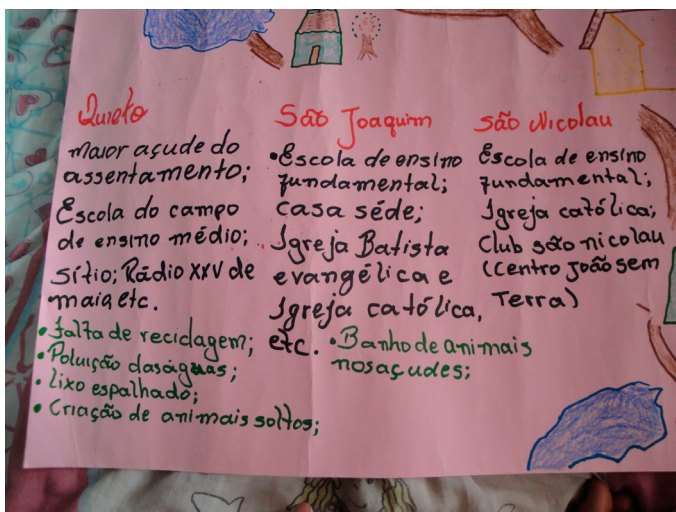 Quieto
maior açude do
assentamento;
Escola do campo
de ensino médio;
Sítio; Rádio XXV de
maia etc.
• falta de reciclagem;
• Poluição das águas;
• Lixo espalhado;
• Criação de animais soltos;
São Joaquim
• Escola de ensino
fundamental;
casa séde;
Igreja Batista
evangélica e
Igreja católica,
etc.
• Banho de animais
nos açudes;
São Nicolau
Escola de ensino
fundamental;
Igreja católica;
Club são nicolau
(Centro João sem
Terra)